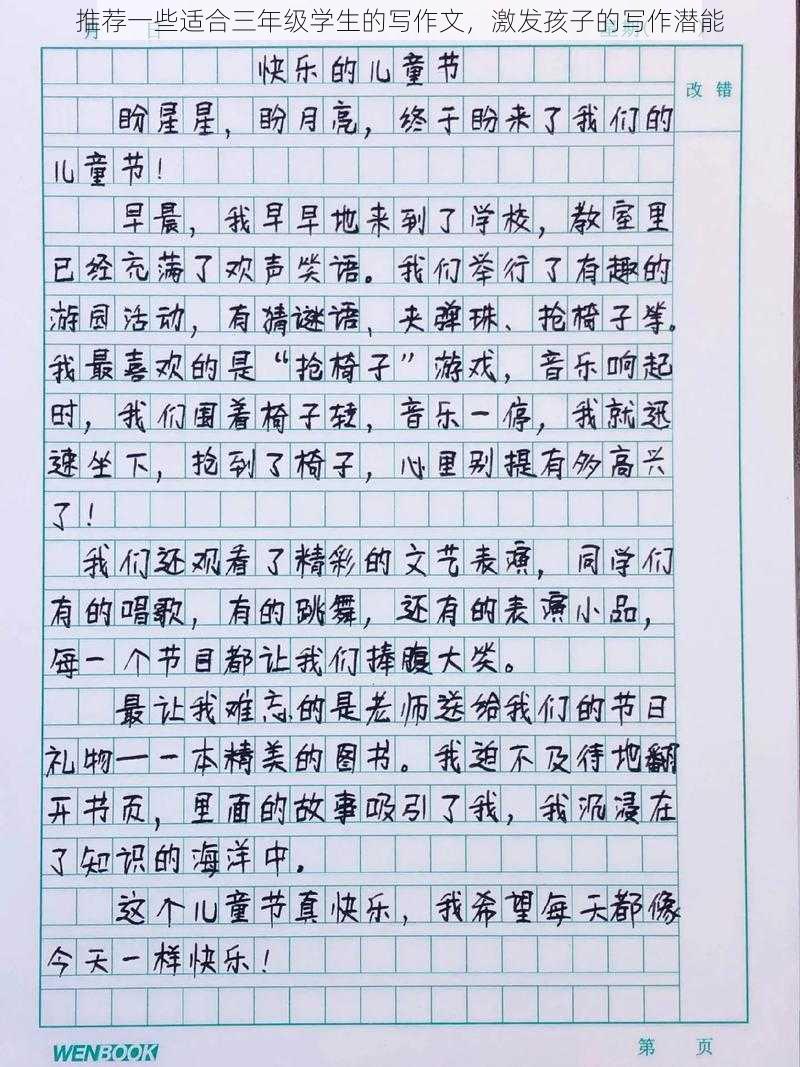 推荐一些适合三年级学生的写作文，激发孩子的写作潜能
月 日
快乐的儿童节
改 错
盼星星，盼月亮，终于盼来了我们的
儿童节！
早晨，我早早地来到了学校，教室里
已经充满了欢声笑语。我们举行了有趣的
游园活动，有猜谜语、夹弹珠、抢椅子等。
我最喜欢的是“抢椅子”游戏，音乐响起
时，我们围着椅子转，音乐一停，我就迅
速坐下，抢到了椅子，心里别提有多高兴
了！
我们还观看了精彩的文艺表演，同学们
有的唱歌，有的跳舞，还有的表演小品，
每一个节目都让我们捧腹大笑。
最让我难忘的是老师送给我们的节日
礼物——一本精美的图书。我迫不及待地翻
开书页，里面的故事吸引了我，我沉浸在
了知识的海洋中。
这个儿童节真快乐，我希望每天都像
今天一样快乐！
WENBOOK
第 页